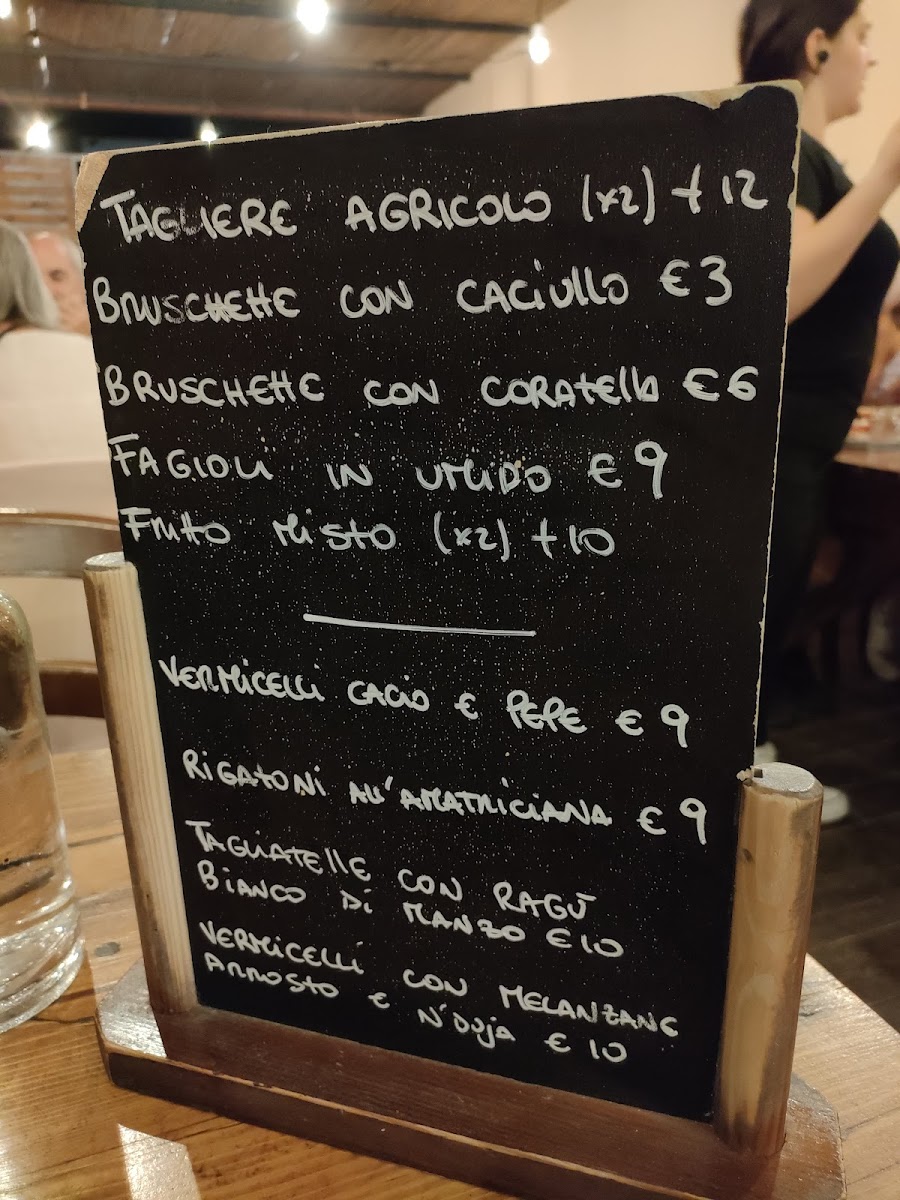 TAGLIERE AGRICOLO (x2) † 12
BRUSCHETTE CON CACIULLO € 3
BRUSCHETTE CON CORATELLA € 6
FAGIOLI IN UMIDO € 9
FRITTO MISTO (x2) † 10
VERMICELLI CACIO E PEPE € 9
RIGATONI ALL'AMATRICIANA € 9
TAGLIATELLE CON RAGÙ
BIANCO DI MANZO € 10
VERMICELLI CON MELANZANE
ARROSTO E N'DUJA € 10